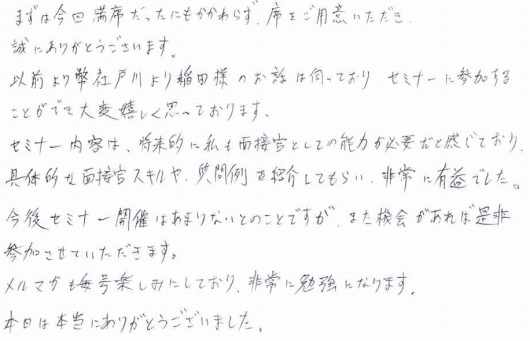 まずは今回満席だったにもかかわらず、席をご用意いただき
誠にありがとうございます。
以前より弊社戸川より稲田様のお話は伺っており セミナーに参加する
ことができ大変嬉しく思っております。
セミナー内容は、将来的に私も面接官としての能力が必要だと感じており、
具体的な面接官スキルや、質問例を紹介してもらい、非常に有益でした。
今後セミナー開催はあまりないとのことですが、また機会があれば是非
参加させていただきます。
メルマガも毎号楽しみにしており、非常に勉強になります。
本日は本当にありがとうございました。